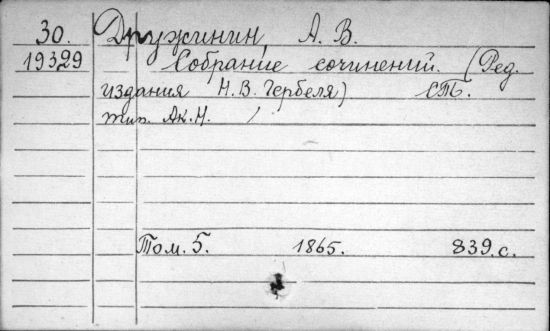 30. Дружинин, А. В.
19329 Собрание сочинений. (Ред.
издания Н. В. Гербеля) СПб.
тип. Ак. Н.
Том. 5. 1865. 839.с.